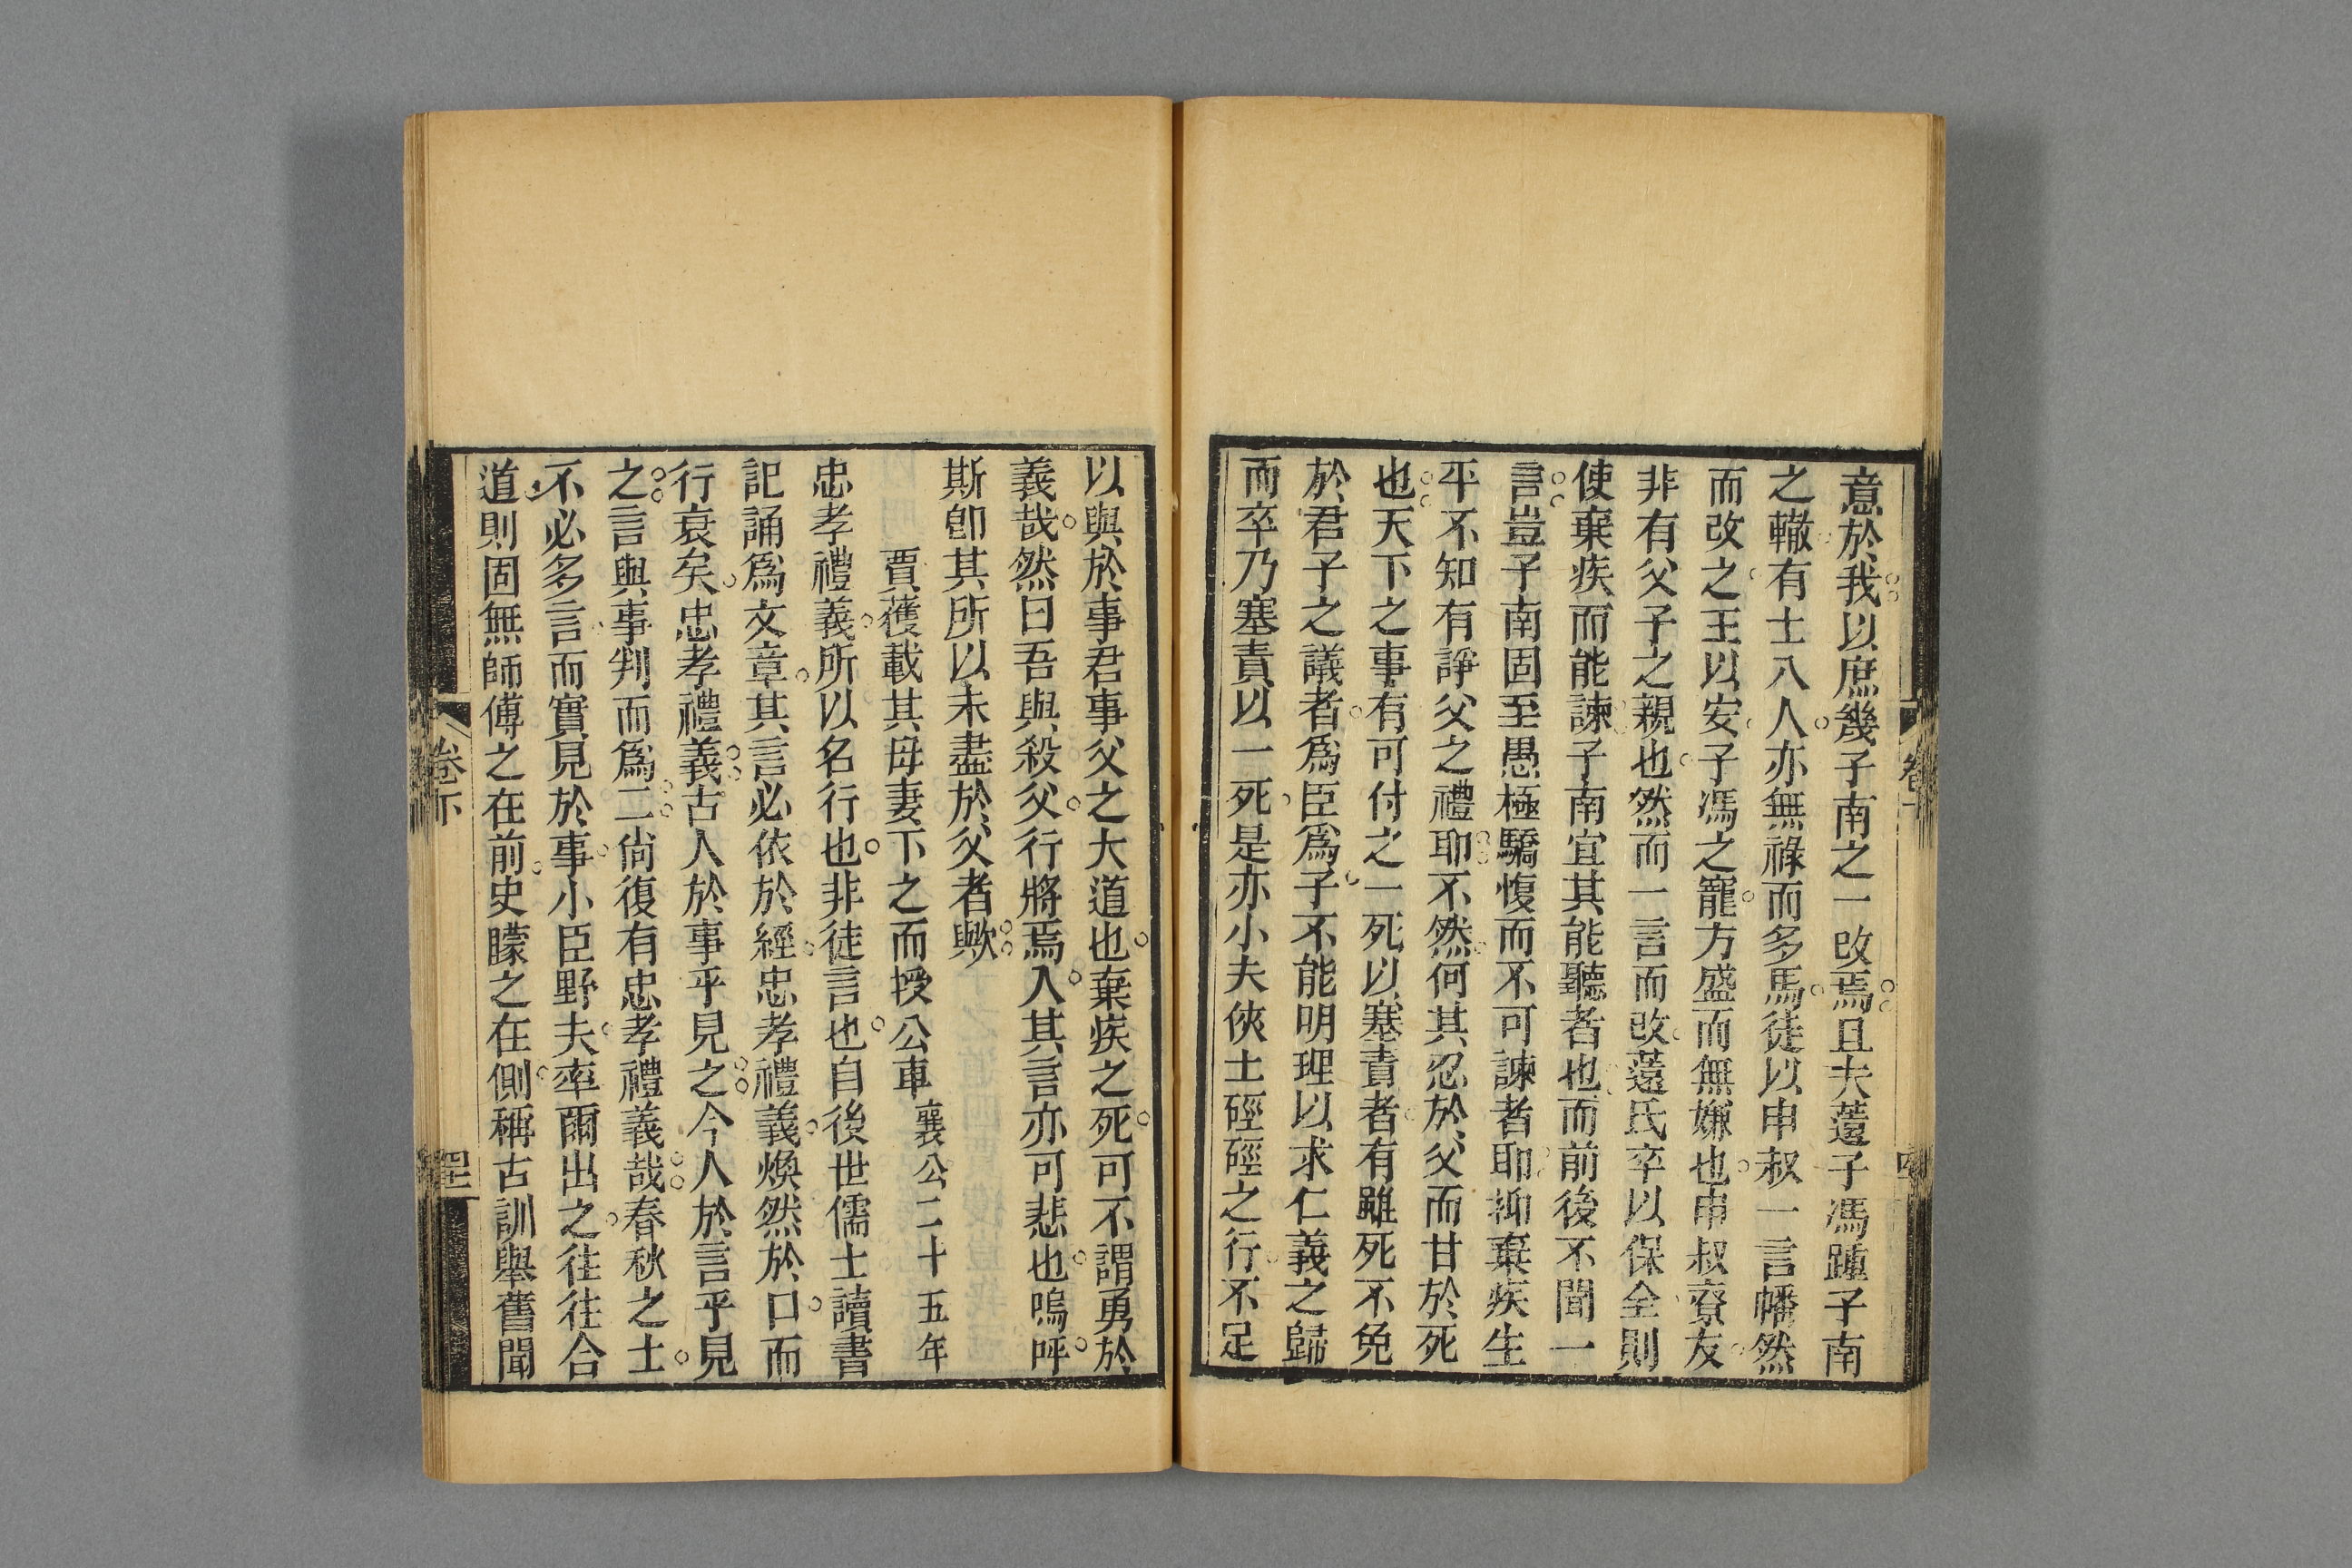 意於我以庶幾子南之一改焉且夫薳子馮踵子南
之轍有士八人亦無祿而多馬徒以申叔一言幡然
而改之王以安子馮之寵方盛而無嫌也申叔寮友
非有父子之親也然而一言而改薳氏卒以保全則
使棄疾而能諫子南宜其能聽者也而前後不聞一
言豈子南固至愚極驕愎而不可諫者耶抑棄疾生
平不知有諍父之禮耶不然何其忍於父而甘於死
也天下之事有可付之一死以塞責者有雖死不免
於君子之議者爲臣爲子不能明理以求仁義之歸
而卒乃塞責以一死是亦小夫俠士硜硜之行不足
以與於事君事父之大道也棄疾之死可不謂勇於
義哉然曰吾與殺父行將焉入其言亦可悲也嗚呼
斯卽其所以未盡於父者歟
賈獲載其母妻下之而授公車 襄公二十五年
忠孝禮義所以名行也非徒言也自後世儒士讀書
記誦爲文章其言必依於經忠孝禮義煥然於口而
行衰矣忠孝禮義古人於事乎見之今人於言乎見
之言與事判而爲二尚復有忠孝禮義哉春秋之士
不必多言而實見於事小臣野夫率爾出之往往合
道則固無師傅之在前史矇之在側稱古訓舉舊聞
卷下